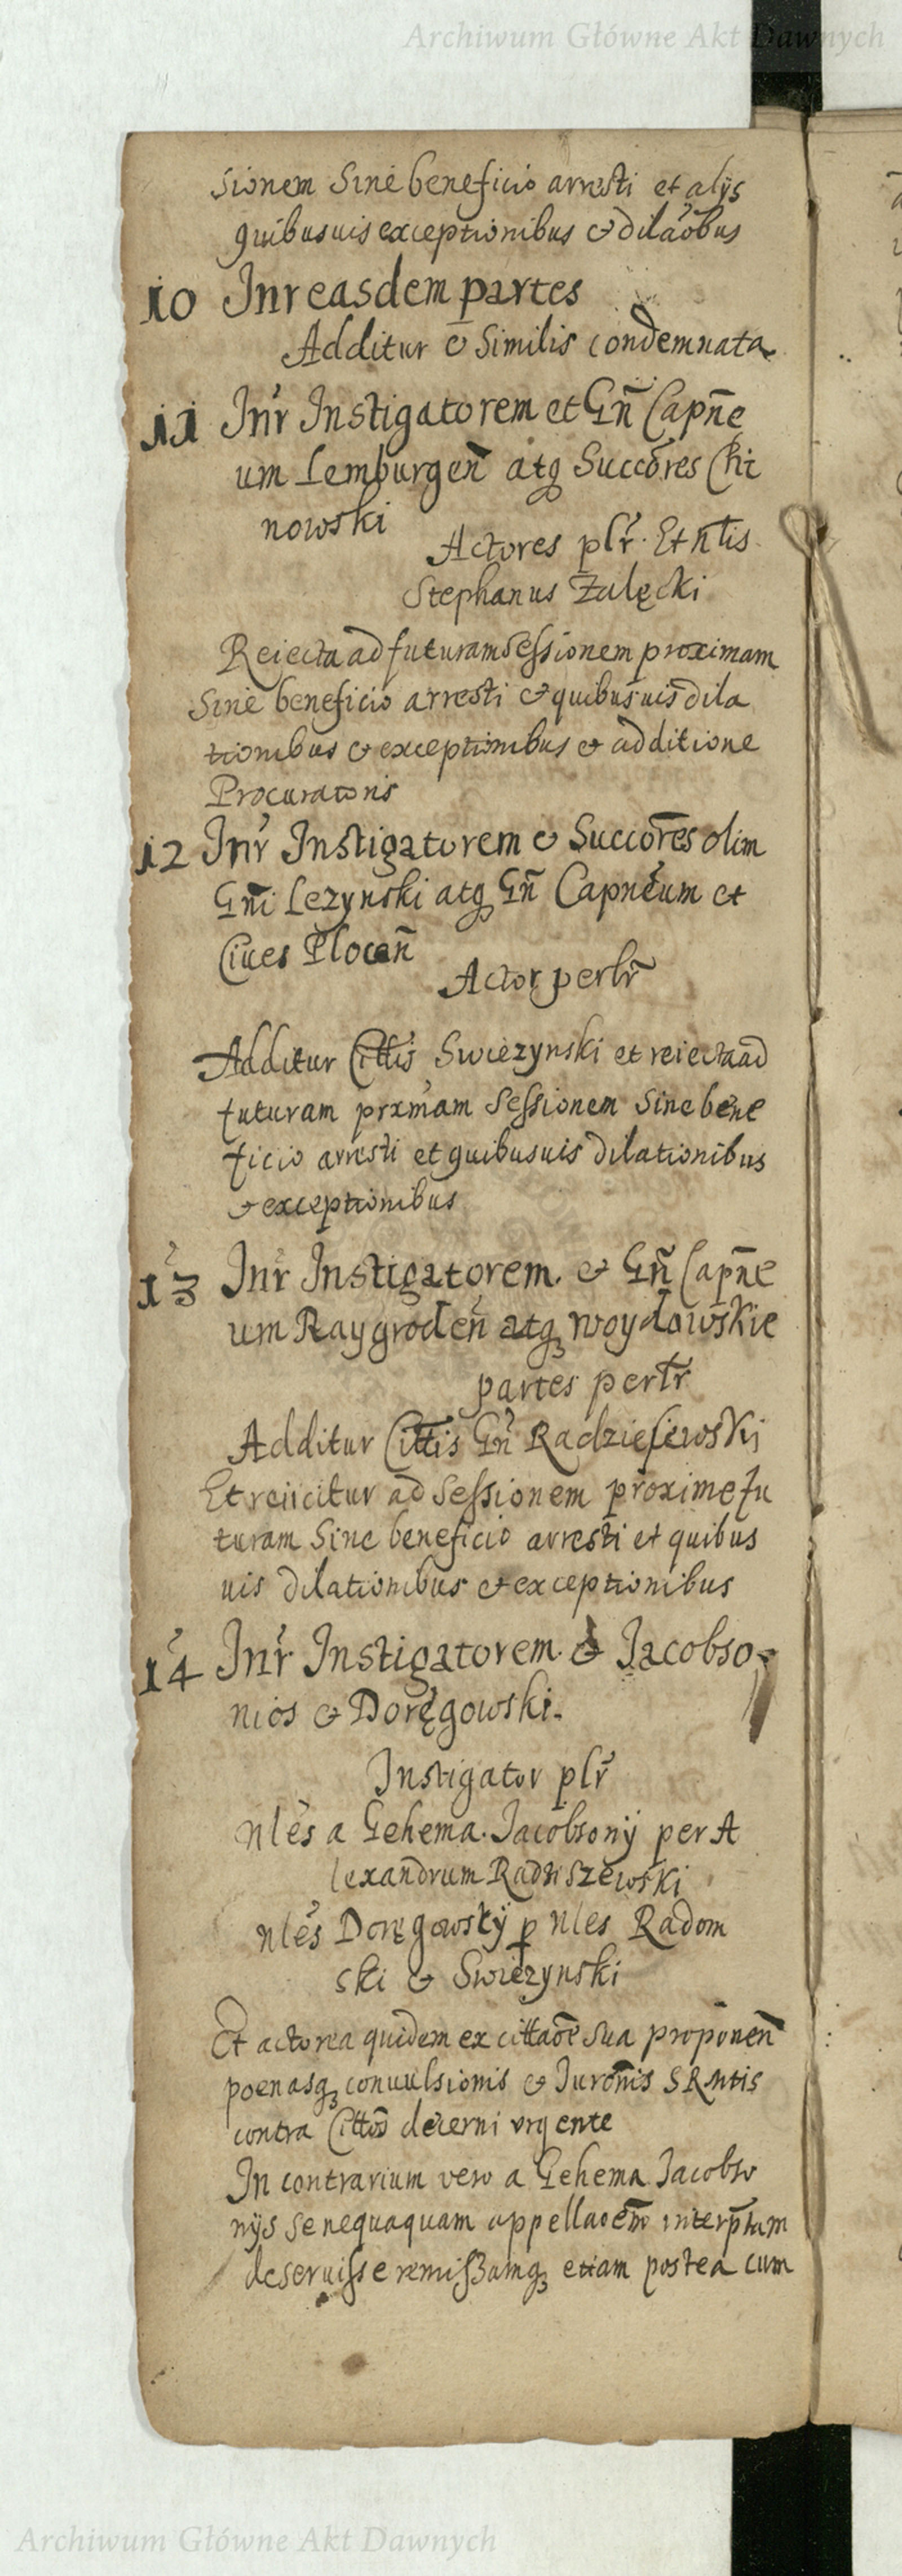 Archiwum Główne Akt Dawnych
sionem Sine beneficio arresti et alijs
quibusuis exceptionibus & dilãobus
10 Inr easdem partes
Additur & Similis condemnata
11 Inr Instigatorem et Gñ Capñe
um Lemburgeñ atq Succores Chi
nowski
Actores plr. Et ñlis
Stephanus Zalęcki
Reiecta ad futuram Sessionem proximam
Sine beneficio arresti & quibusuis dila
tionibus & exceptionibus & additione
Procuratoris
12 Inr Instigatorem & Succores olim
Gñi Lezynski atq Gñ Capneum et
Ciues Ploceñ
Actor perlr
Additur Cittis Swiezynski et reiecta ad
futuram prxmam Sessionem Sine bene
ficio arresti et quibusuis dilationibus
& exceptionibus
13 Inr Instigatorem. & Gñ Capñe
um Raygrodeñ atq Woydowskie
partes perlr
Additur Cittis Gñ Radzieiewski
Et reiicitur ad Sessionem proxime fu
turam Sine beneficio arresti et quibus
uis dilationibus & exceptionibus
14 Inr Instigatorem. & Jacobso
nios & Doręgowski.
Instigator plr
Nles a Gehema. Jacobsonij per A
lexandrum Radziszewski
Nles Doręgowskÿ p Nles Radom
ski & Swiezynski
Et actorea quidem ex cittaõe sua proponeñ
poenasq conuulsionis & Juronis SRMtis
contra Cittos decerni vrgente
In contrarium vero a Gehema Jacobso
nijs se nequaquam appellaoem interptam
deseruisse remissamq etiam postea cum
Archiwum Główne Akt Dawnych